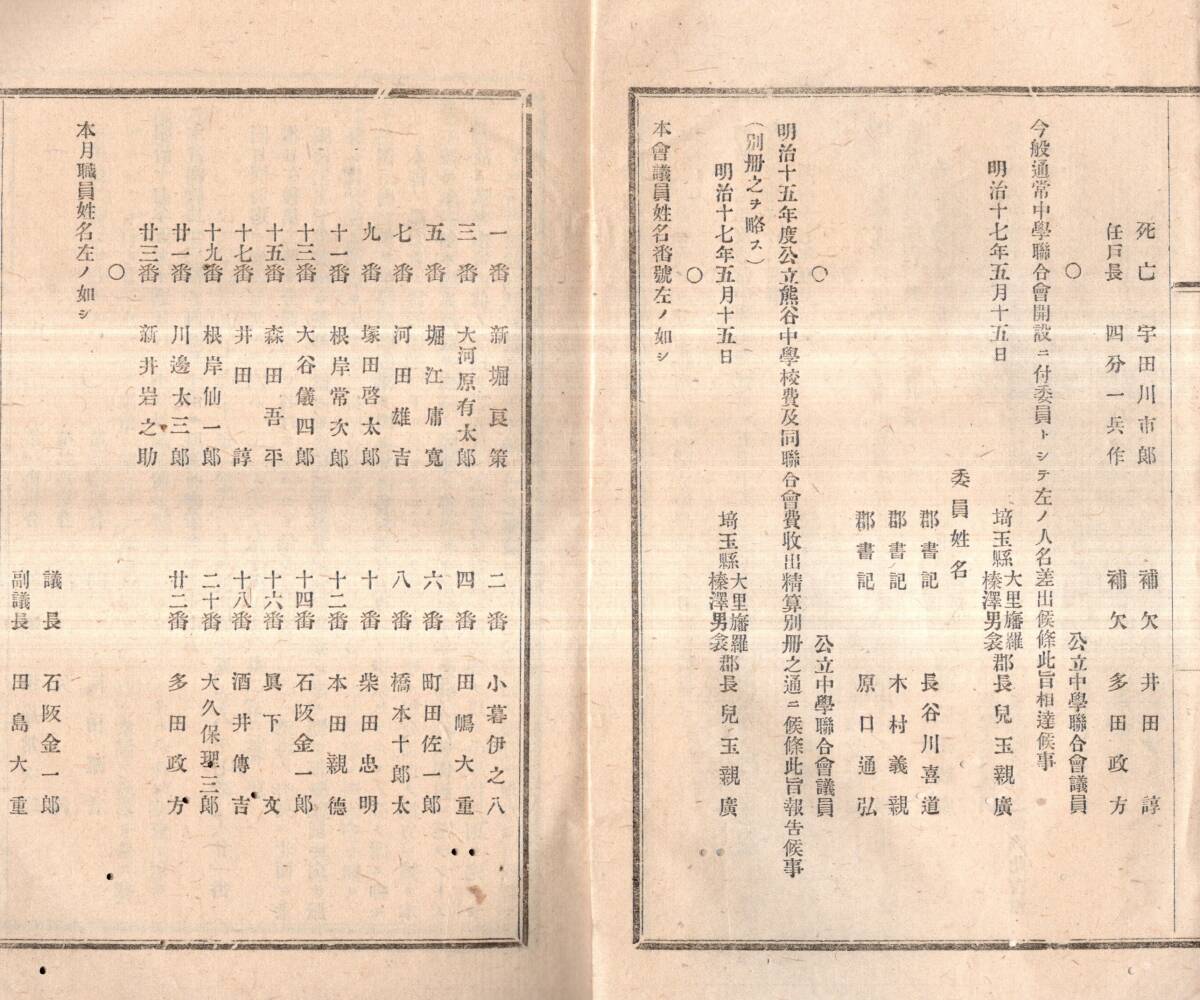 死亡 宇田川市郎 補欠 井田諄
任戸長 四分一兵作 補欠 多田政方
○ 公立中學聯合會議員
今般通常中學聯合會開設ニ付委員トシテ左ノ人名差出候條此旨相達候事
明治十七年五月十五日 埼玉縣大里旛羅榛澤男衾郡長兒玉親廣
委員姓名
郡書記 長谷川喜道
郡書記 木村義親
郡書記 原口通弘
○ 公立中學聯合會議員
明治十五年度公立熊谷中學校費及同聯合會費收出精算別冊之通ニ候條此旨報告候事
(別冊之ヲ略ス)
明治十七年五月十五日 埼玉縣大里旛羅榛澤男衾郡長兒玉親廣
○
本會議員姓名番號左ノ如シ
一番 新堀良策 二番 小暮伊之八
三番 大河原有太郎 四番 田嶋大重
五番 堀江庸寬 六番 町田佐一郎
七番 河田雄吉 八番 橋本十郎太
九番 塚田啓太郎 十番 柴田忠明
十一番 根岸常次郎 十二番 本田親德
十三番 大谷儀四郎 十四番 石阪金一郎
十五番 森田吾平 十六番 眞下文
十七番 井田諄 十八番 酒井傳吉
十九番 根岸仙一郎 二十番 大久保理三郎
廿一番 川邊太三郎 廿二番 多田政方
廿三番 新井岩之助
○
本月職員姓名左ノ如シ
議長 石阪金一郎
副議長 田島大重